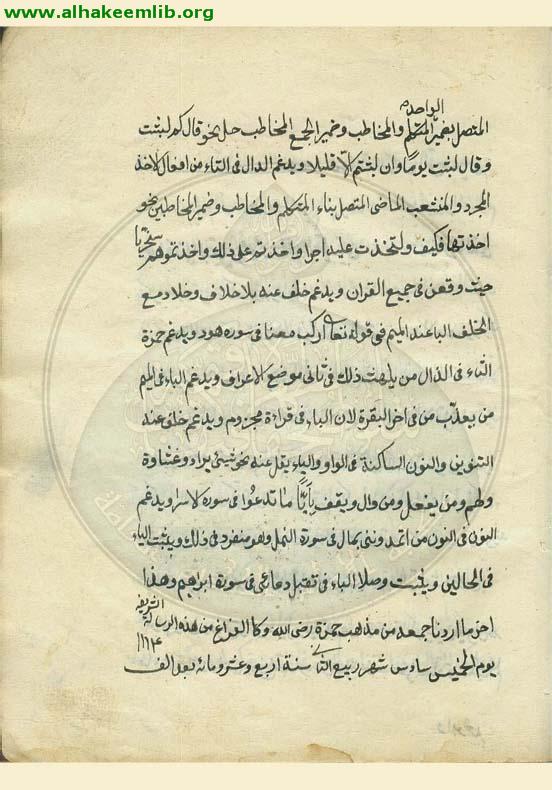 www.alhakeemlib.org
الواحد
المتصل بضمير المتكلم والمخاطب وضمير الجمع المخاطب حل نحو قال كم لبثت
وقال لبثت يوما وان لبثتم الا قليلا ويدغم الدال فى التاء من افعال الاخذ
المجرد والمنشعب الماضى المتصل بتاء المتكلم والمخاطب وضمير المخاطبين نحو
اخذتها فكيف ولتخذت عليه اجرا واخذتم على ذلك واخذتموهم سخريا
حيث وقعن فى جميع القران ويدغم خلف عنه بلا خلاف وخلاد مع
الختلف الباء عند الميم فى قوله تعالى اركب معنا فى سوره هود ويدغم حمزة
الثاء فى الذال من يلهث ذلك فى ثانى موضع الاعراف ويدغم الباء فى الميم
من يعذب من فى اخر البقرة لان الباء فى قراءة مجزوم ويدغم خلف عنه
التنوين والنون الساكنة فى الواو والياء يقل عنه نحو شيئ يراد وغشاوة
ولهم ومن يفعل ومن وال ويقف باياً ما تدعوا فى سوره الاسرا ويدغم
النون فى النون من اتمدوننى بمال فى سورة النمل وهو منفرد فى ذلك ويثبت الياء
فى الحالين ويثبت وصلا الياء فى تقبل دعائى فى سورة ابراهيم وهذا
اخر ما اردنا جمعه من مذهب حمزة رضى الله وكا الفراغ من هذه الرسالة الشريفه
يوم الخميس سادس شهر ربيع الثانى سنة اربع وعشر ومائه بعد الف